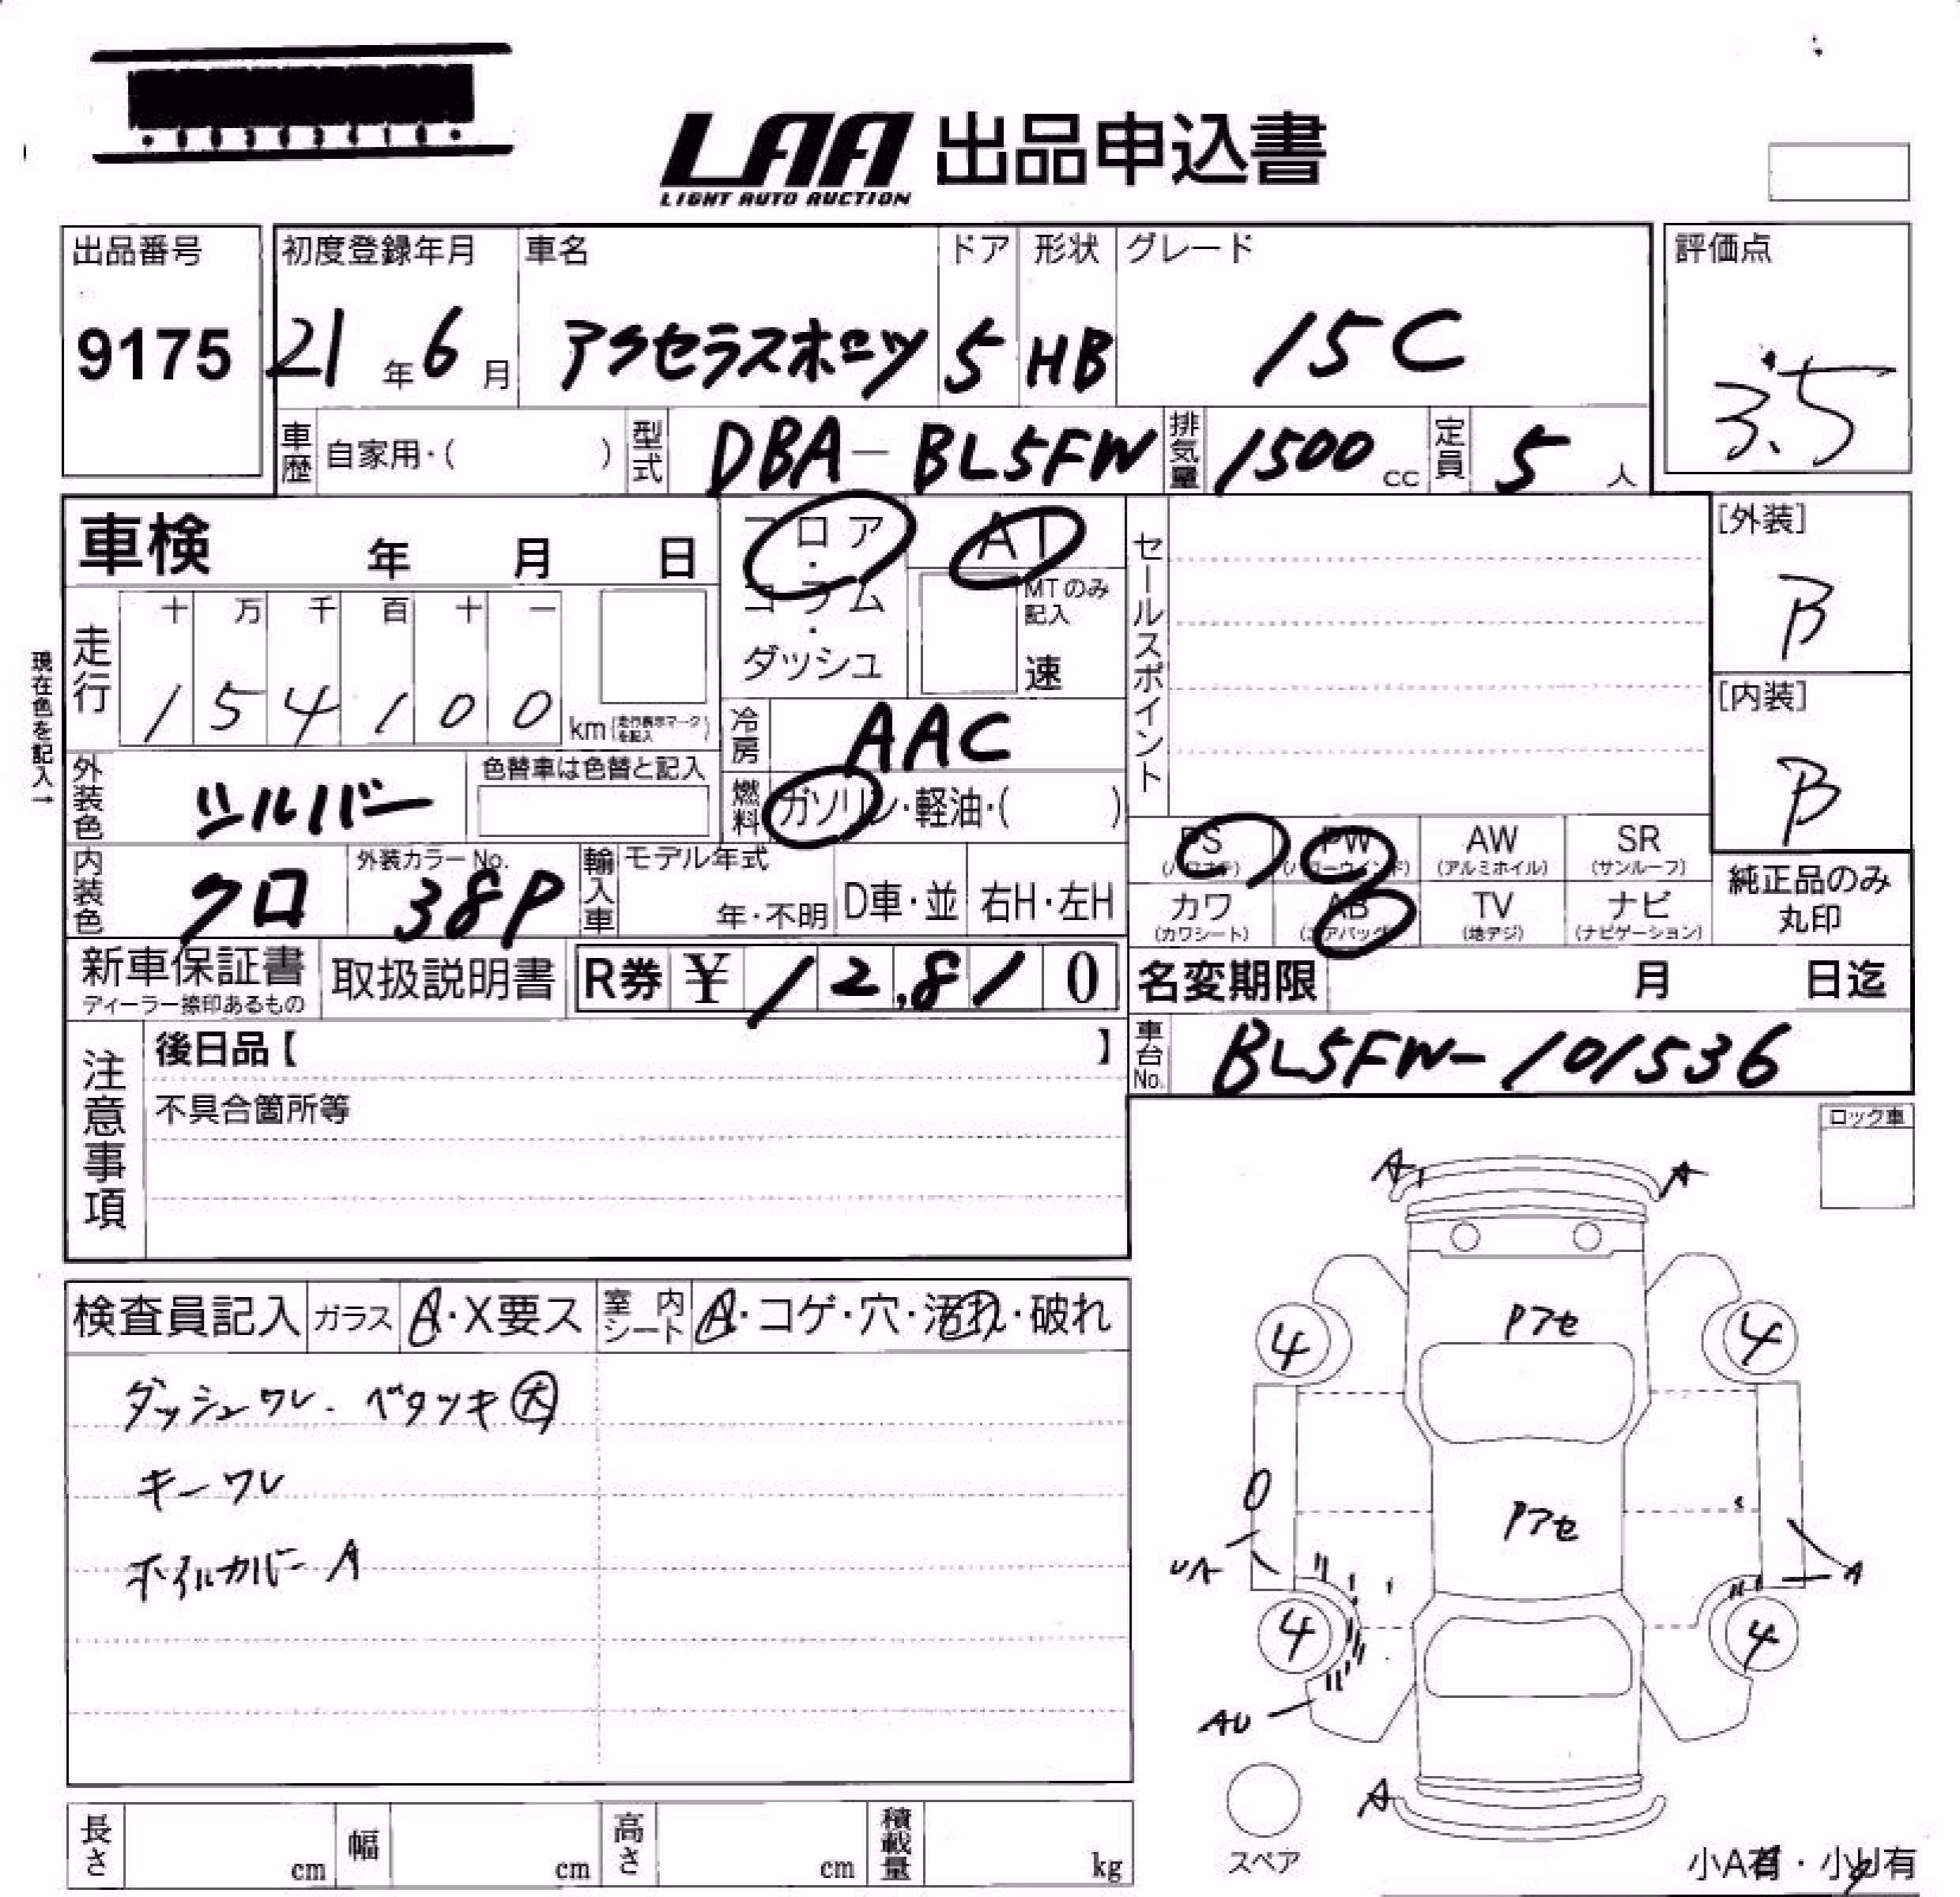 LAA 出品申込書
LIGHT AUTO AUCTION
出品番号 初度登録年月 車名 ドア 形状 グレード 評価点
9175 21年6月 アクセラスポーツ 5 HB 15C 3.5
車歴 自家用・( ) 型式 DBA-BL5FW 排気量 1500cc 定員 5人
車検 年 月 日 フロア・コラム・ダッシュ AT MTのみ記入 速 セールスポイント [外装] B
現在色を記入→
走行 十 万 千 百 十 一
1 5 4 1 0 0 km (走行表示マークを記入)
冷房 AAC [内装] B
外装色 シルバー 色替車は色替と記入 燃料 ガソリン・軽油・( )
PS (パワステ) PW (パワーウインド) AW (アルミホイル) SR (サンルーフ)
内装色 クロ 外装カラーNo. 38P 輸入車 モデル年式 年・不明 D車・並 右H・左H
カワ (カワシート) AB (エアバッグ) TV (地デジ) ナビ (ナビゲーション) 純正品のみ丸印
新車保証書 ディーラー捺印あるもの 取扱説明書 R券 ¥ 12,810 名変期限 月 日迄
注意事項 後日品【 】 車台No. BL5FW-101536
不具合箇所等
ロック車
A A
検査員記入 ガラス A・X要ス 室内シート A・コゲ・穴・汚れ・破れ
4 Pアセ 4
ダッシュワレ・ベタツキ大
キーワレ
Pアセ
ホイルカバーA
UA A
4 4
AU
A
スペア
長さ cm 幅 cm 高さ cm 積載量 kg
小A有・小U有